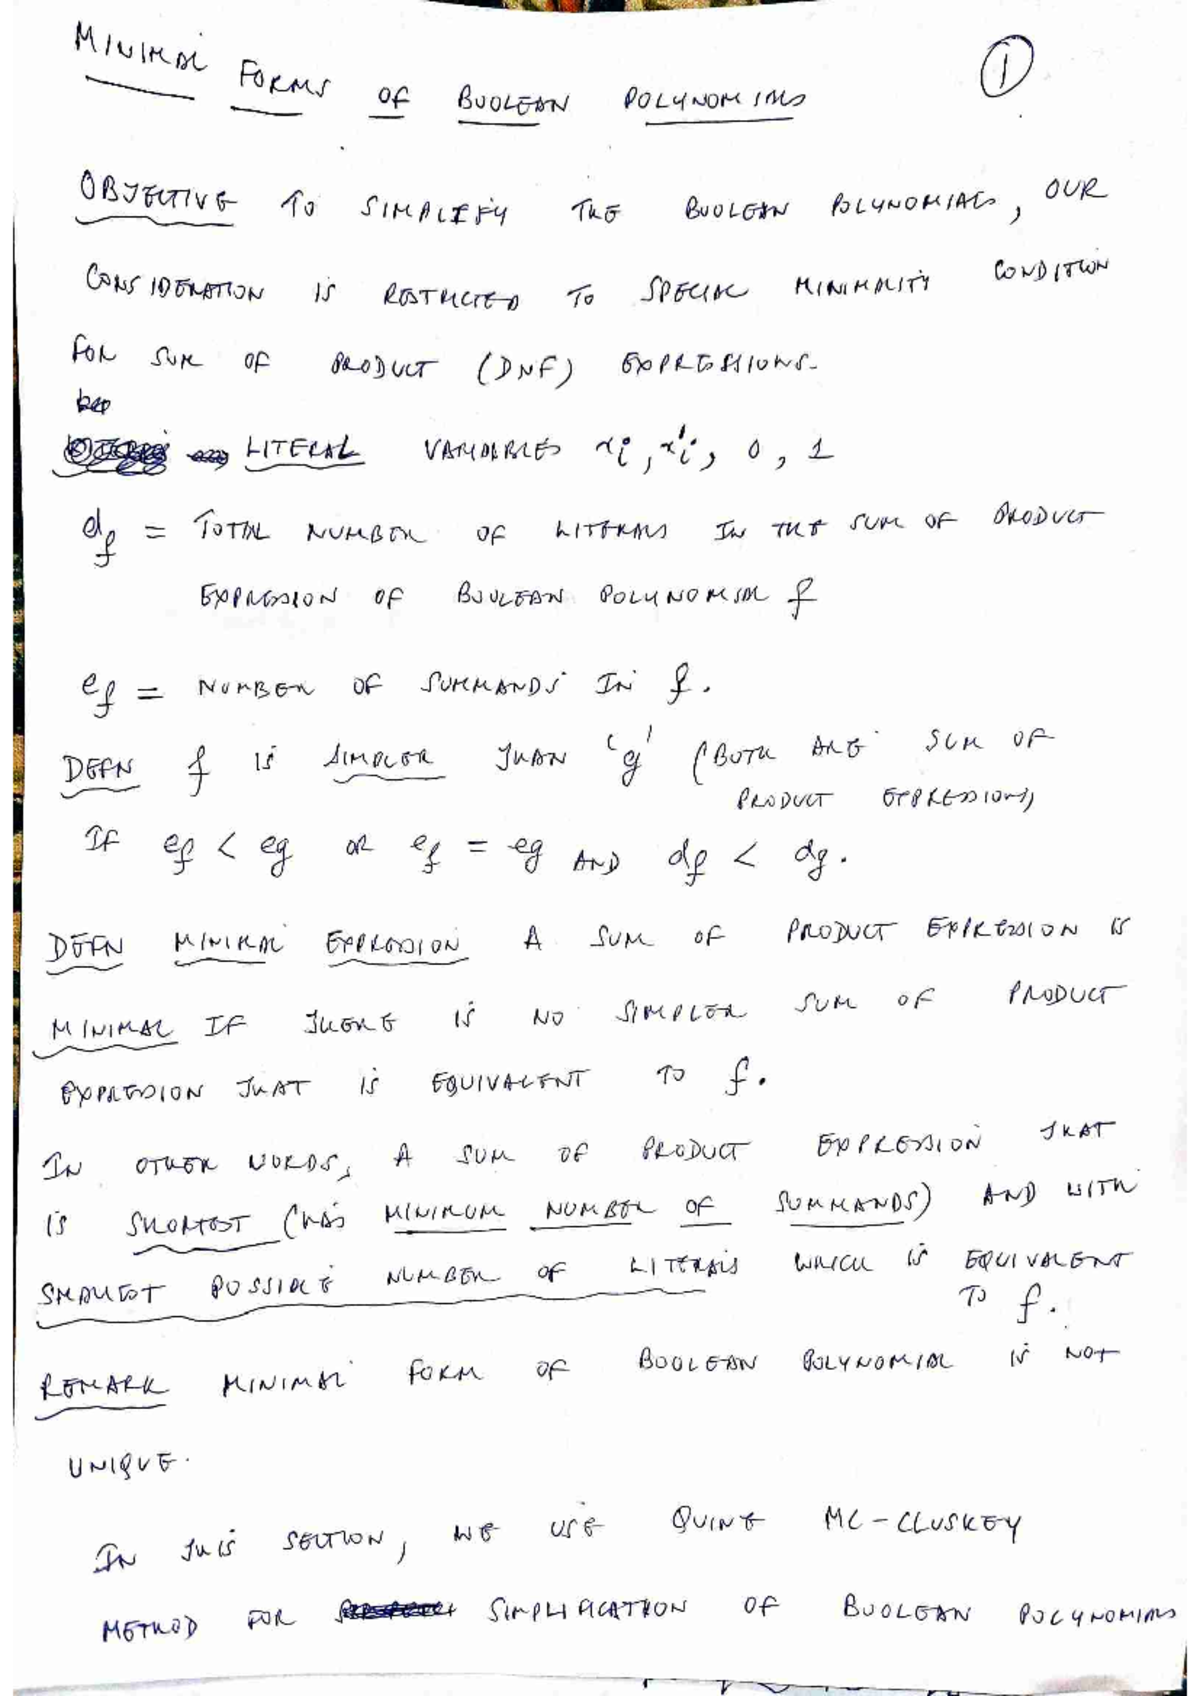 MINIMAL FORMS OF BOOLEAN POLYNOMIALS
1
OBJECTIVE TO SIMPLIFY THE BOOLEAN POLYNOMIALS, OUR
CONSIDERATION IS RESTRICTED TO SPECIAL MINIMALITY CONDITION
FOR SUM OF PRODUCT (DNF) EXPRESSIONS.
LITERAL VARIABLES xi, x'i, 0, 1
df = TOTAL NUMBER OF LITERALS IN THE SUM OF PRODUCT
EXPRESSION OF BOOLEAN POLYNOMIAL f
ef = NUMBER OF SUMMANDS IN f.
DEFN f IS SIMPLER THAN 'g' (BOTH ARE SUM OF
PRODUCT EXPRESSIONS)
IF ef < eg OR ef = eg AND df < dg.
DEFN MINIMAL EXPRESSION A SUM OF PRODUCT EXPRESSION IS
MINIMAL IF THERE IS NO SIMPLER SUM OF PRODUCT
EXPRESSION THAT IS EQUIVALENT TO f.
IN OTHER WORDS, A SUM OF PRODUCT EXPRESSION THAT
IS SHORTEST (HAS MINIMUM NUMBER OF SUMMANDS) AND WITH
SMALLEST POSSIBLE NUMBER OF LITERALS WHICH IS EQUIVALENT
TO f.
REMARK MINIMAL FORM OF BOOLEAN POLYNOMIAL IS NOT
UNIQUE.
IN THIS SECTION, WE USE QUINE MC-CLUSKEY
METHOD FOR SIMPLIFICATION OF BOOLEAN POLYNOMIALS